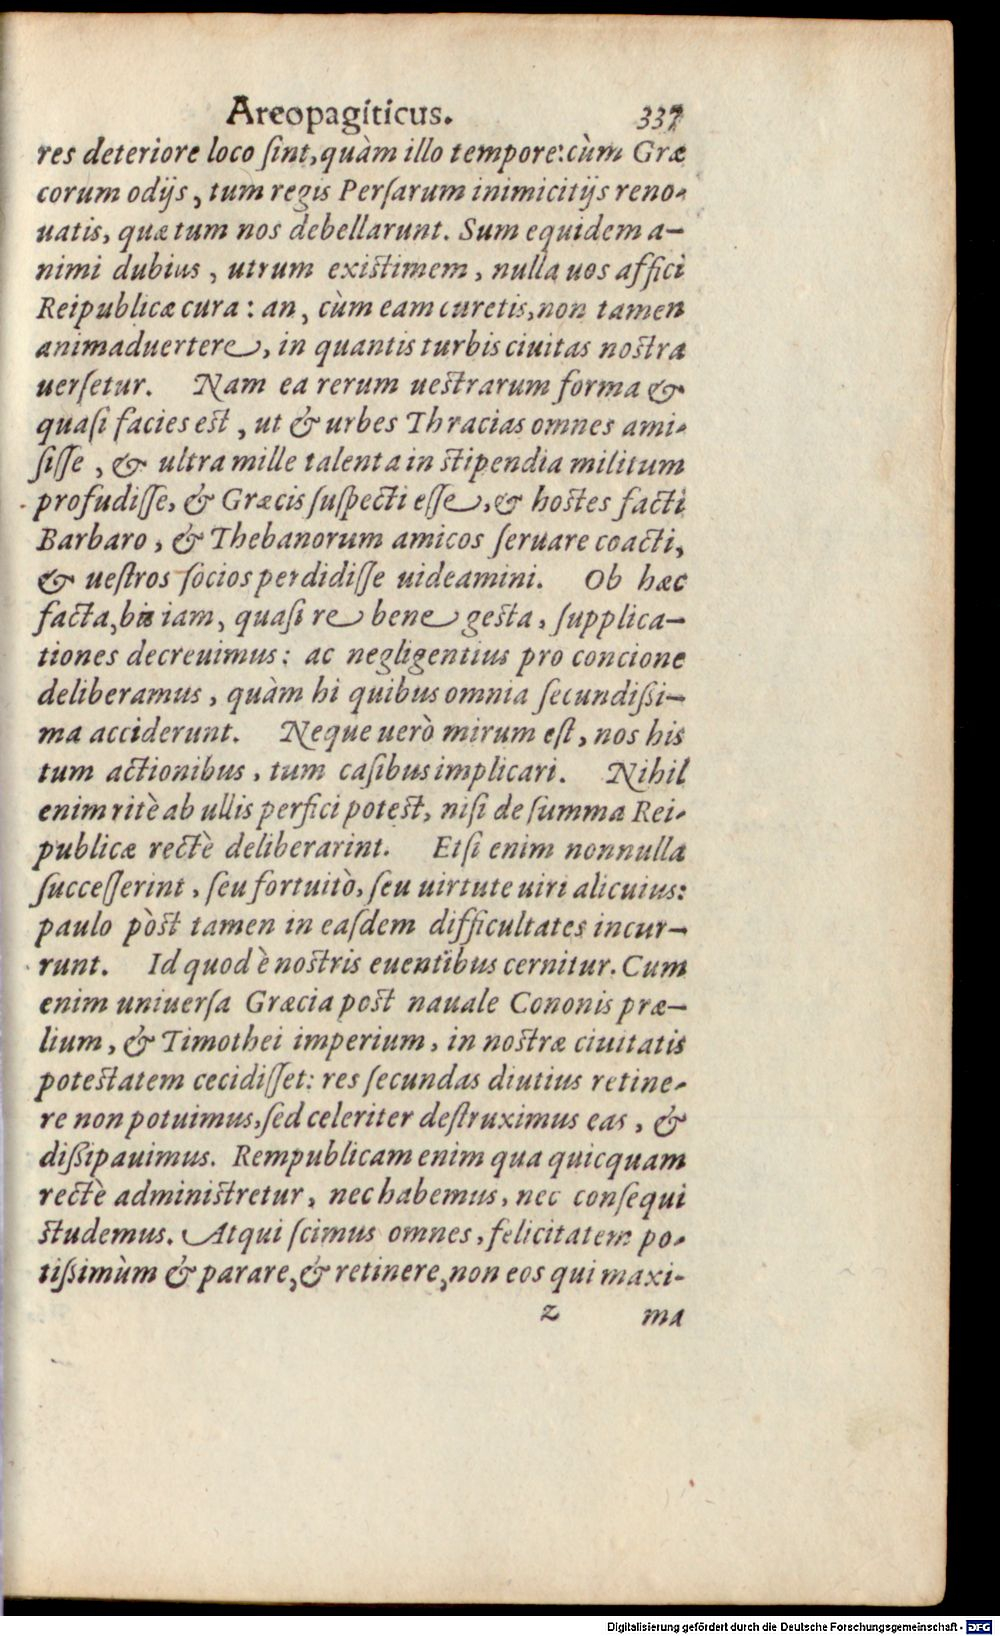 Areopagiticus. 337
res deteriore loco ſint, quàm illo tempore: cùm Græ
corum odijs, tum regis Perſarum inimicitijs reno-
uatis, quæ tum nos debellarunt. Sum equidem a-
nimi dubius, utrum existimem, nulla uos affici
Reipublicæ cura: an, cùm eam curetis, non tamen
animaduertere, in quantis turbis ciuitas nostra
uerſetur. Nam ea rerum uestrarum forma &
quaſi facies est, ut & urbes Thracias omnes ami-
ſiſſe, & ultra mille talenta in stipendia militum
profudiſſe, & Græcis ſuſpecti eſſe, & hostes facti
Barbaro, & Thebanorum amicos ſeruare coacti,
& ueſtros ſocios perdidiſſe uideamini. Ob hæc
facta, bis iam, quaſi re bene gesta, ſupplica-
tiones decreuimus: ac negligentius pro concione
deliberamus, quàm hi quibus omnia ſecundißi-
ma acciderunt. Neque uerò mirum eſt, nos his
tum actionibus, tum caſibus implicari. Nihil
enim ritè ab ullis perfici potest, niſi de ſumma Rei-
publicæ rectè deliberarint. Etſi enim nonnulla
ſucceſſerint, ſeu fortuitò, ſeu uirtute uiri alicuius:
paulo pòst tamen in eaſdem difficultates incur-
runt. Id quod è nostris euentibus cernitur. Cum
enim uniuerſa Græcia post nauale Cononis præ-
lium, & Timothei imperium, in nostræ ciuitatis
potestatem cecidiſſet: res ſecundas diutius retine-
re non potuimus, ſed celeriter deſtruximus eas, &
dißipauimus. Rempublicam enim qua quicquam
rectè administretur, nec habemus, nec conſequi
studemus. Atqui ſcimus omnes, felicitatem po-
tißimùm & parare, & retinere, non eos qui maxi-
z ma
Digitalisierung gefördert durch die Deutsche Forschungsgemeinschaft - DFG